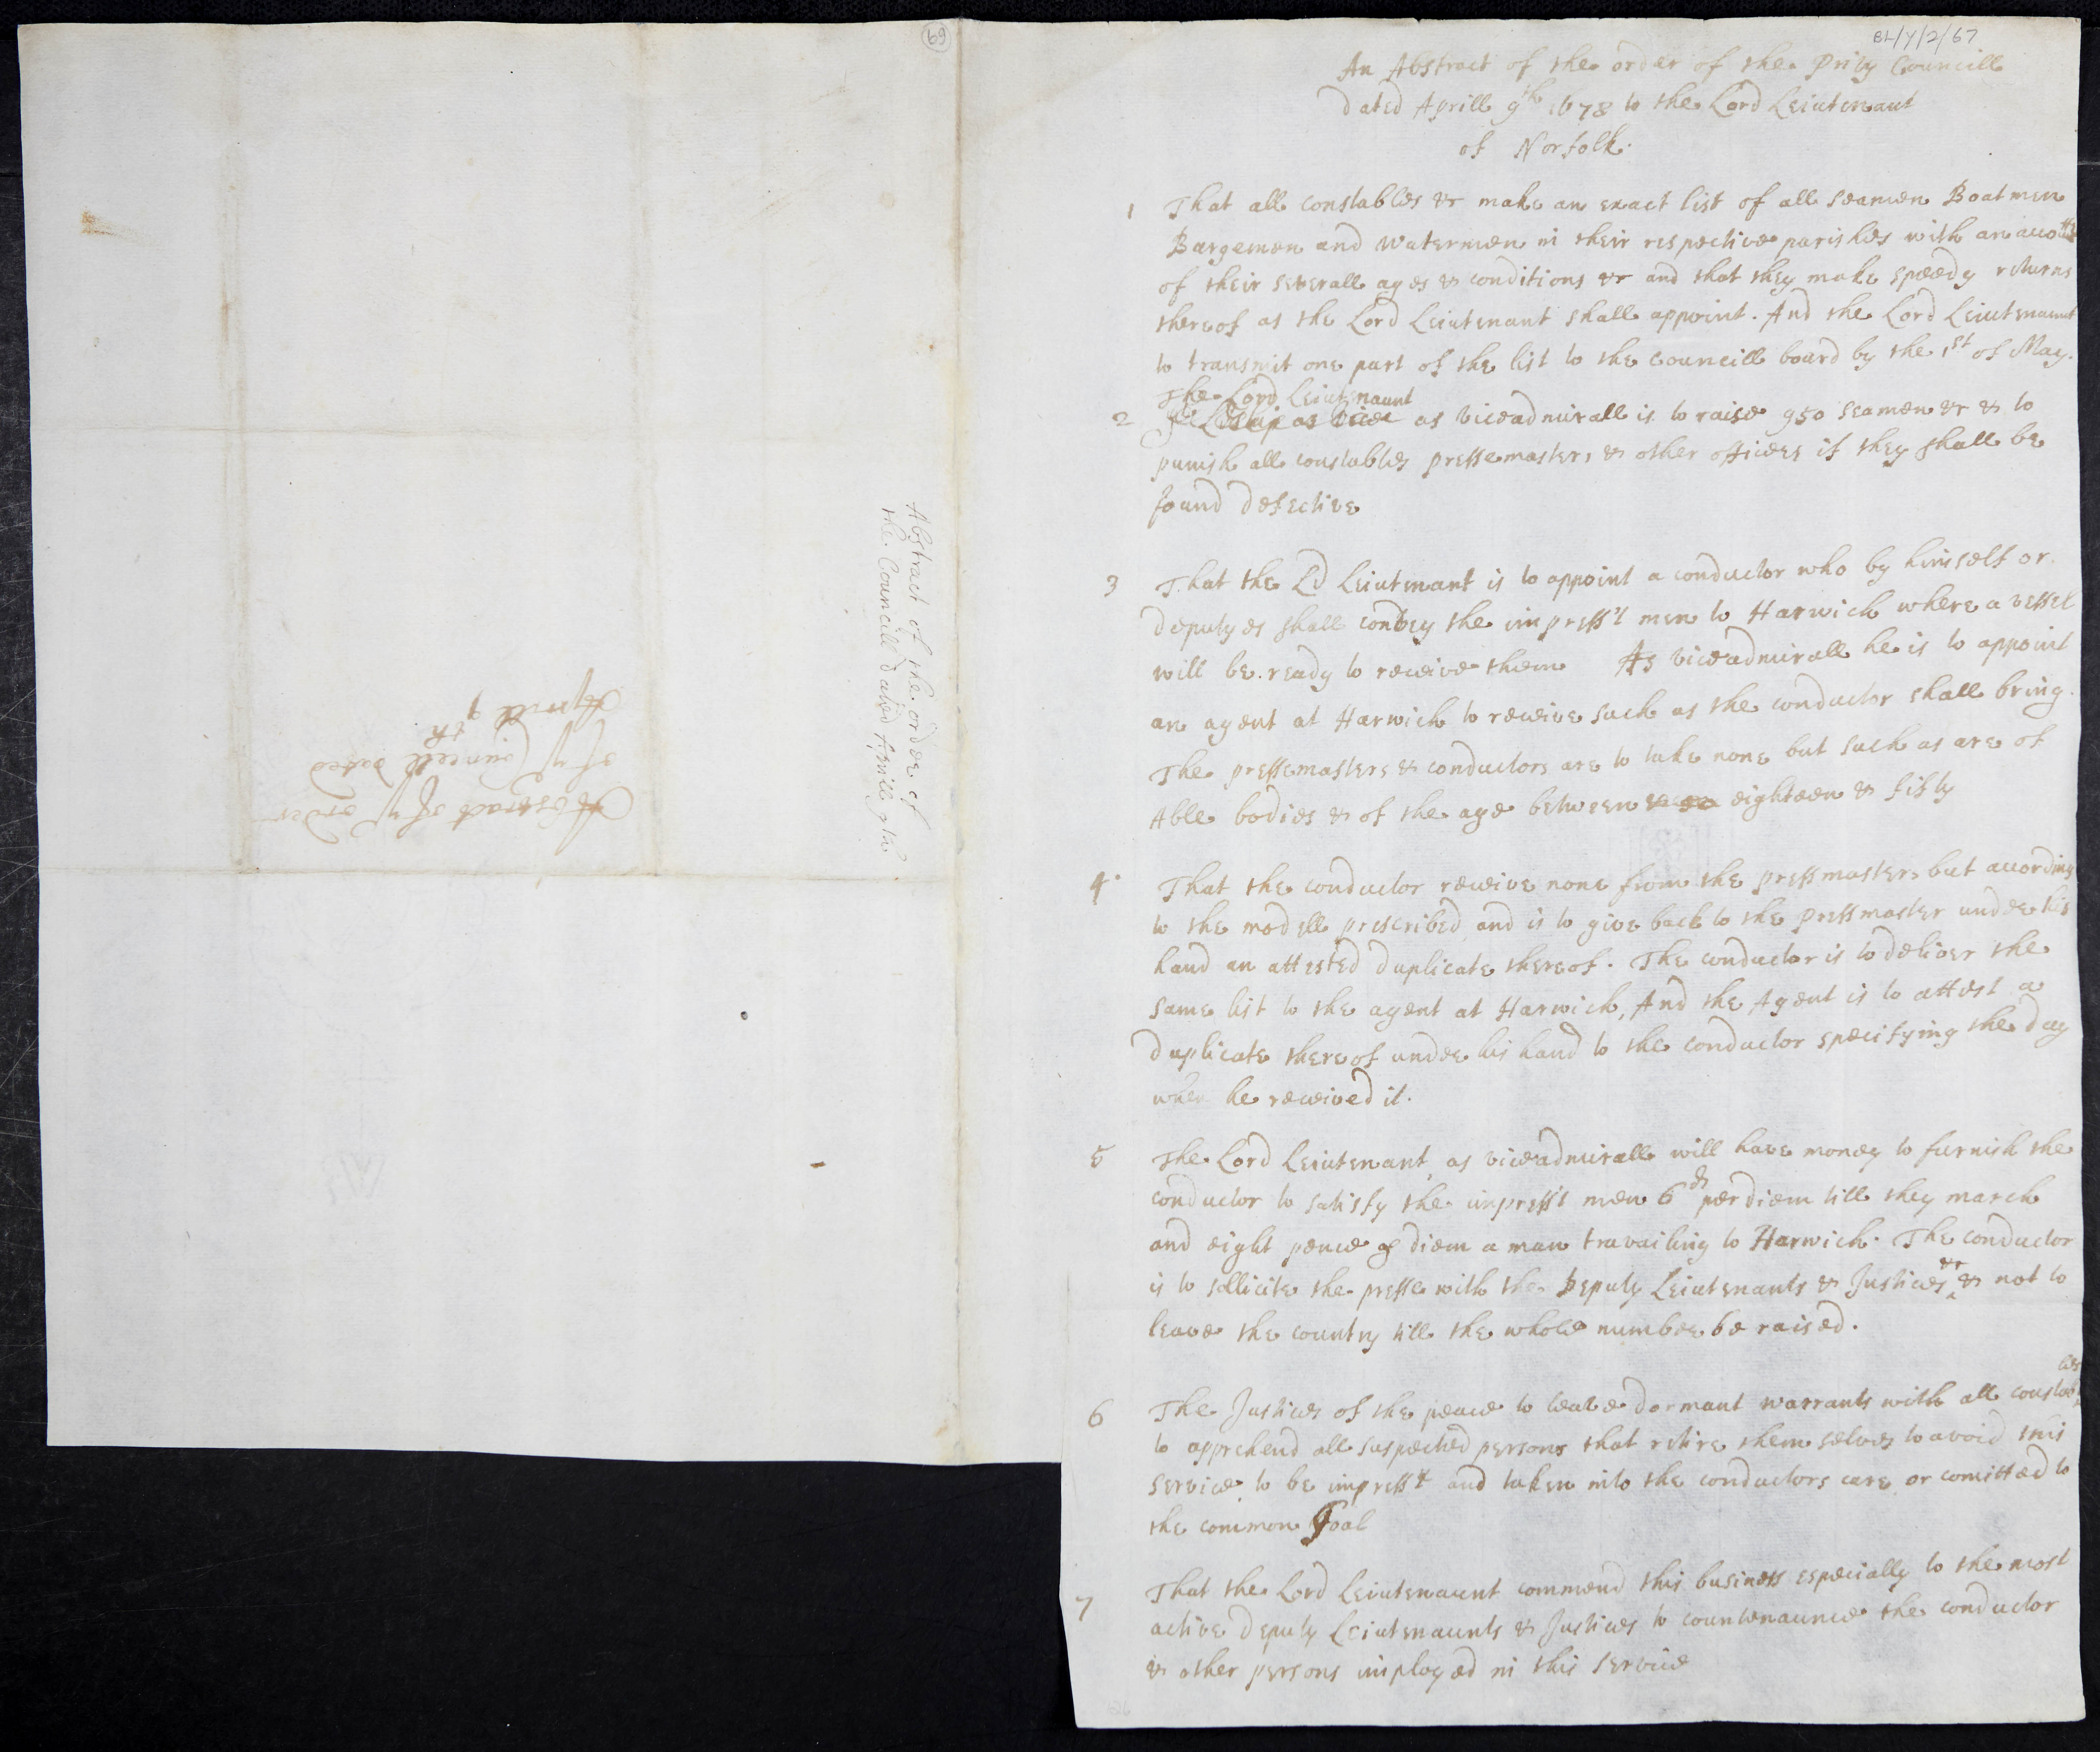 BL/Y/2/67
An Abstract of the order of the Privy Councill
dated Aprill 9th 1678 to the Lord Leiutenant
of Norfolk.
1 That all constables &c make an exact list of all seamen Boatmen
Bargemen and watermen in their respective parishes with an acco
of their severall ages & conditions &c and that they make speedy returns
thereof as the Lord Leiutenant shall appoint. And the Lord Leiutenaunt
to transmit one part of the list to the Councill board by the 1st of May.
The Lord Leiutenaunt
2 as viceadmirall is to raise 950 seamen &c & to
punish all constables pressemasters & other offices if they shall be
found defective
3 That the Ld Leiutenant is to appoint a conductor who by himself or
deputyes shall convey the impress't men to Harwich where a vessel
will be ready to receive them As viceadmirall he is to appoint
an agent at Harwich to receive such as the conductor shall bring.
The pressemasters & conductors are to take none but such as are of
Able bodies & of the age between eighteen & fifty
4. That the conductor receive none from the pressmasters but according
to the modell prescribed and is to give back to the pressmaster under his
hand an attested duplicate thereof. The conductor is to deliver the
same list to the agent at Harwich, And the Agent is to attest a
duplicate thereof under his hand to the conductor specifying the day
when he received it.
5 The Lord Leiutenant as viceadmirall will have money to furnish the
conductor to satisfy the impress't men 6d per diem till they march
and eight pence p diem a man travailing to Harwich. The conductor
is to sollicite the presse with the Deputy Leiutenants & Justices &c & not to
leave the country till the whole number be raised.
6 The Justices of the peace to leave dormant warrants with all constables
to apprehend all suspected persons that retire them selves to avoid this
service to be impress't and taken into the conductors care or comitted to
the common Goal
7 That the Lord Leiutenaunt commend this business especially to the most
active Deputy Leiutenaunts & Justices to countenaunce the conductor
& other persons imployed in this service
69
Abstract of the order of
the Councill dated Aprill 9th
Abstract of ye order
of ye Councell dated
Aprill 9th